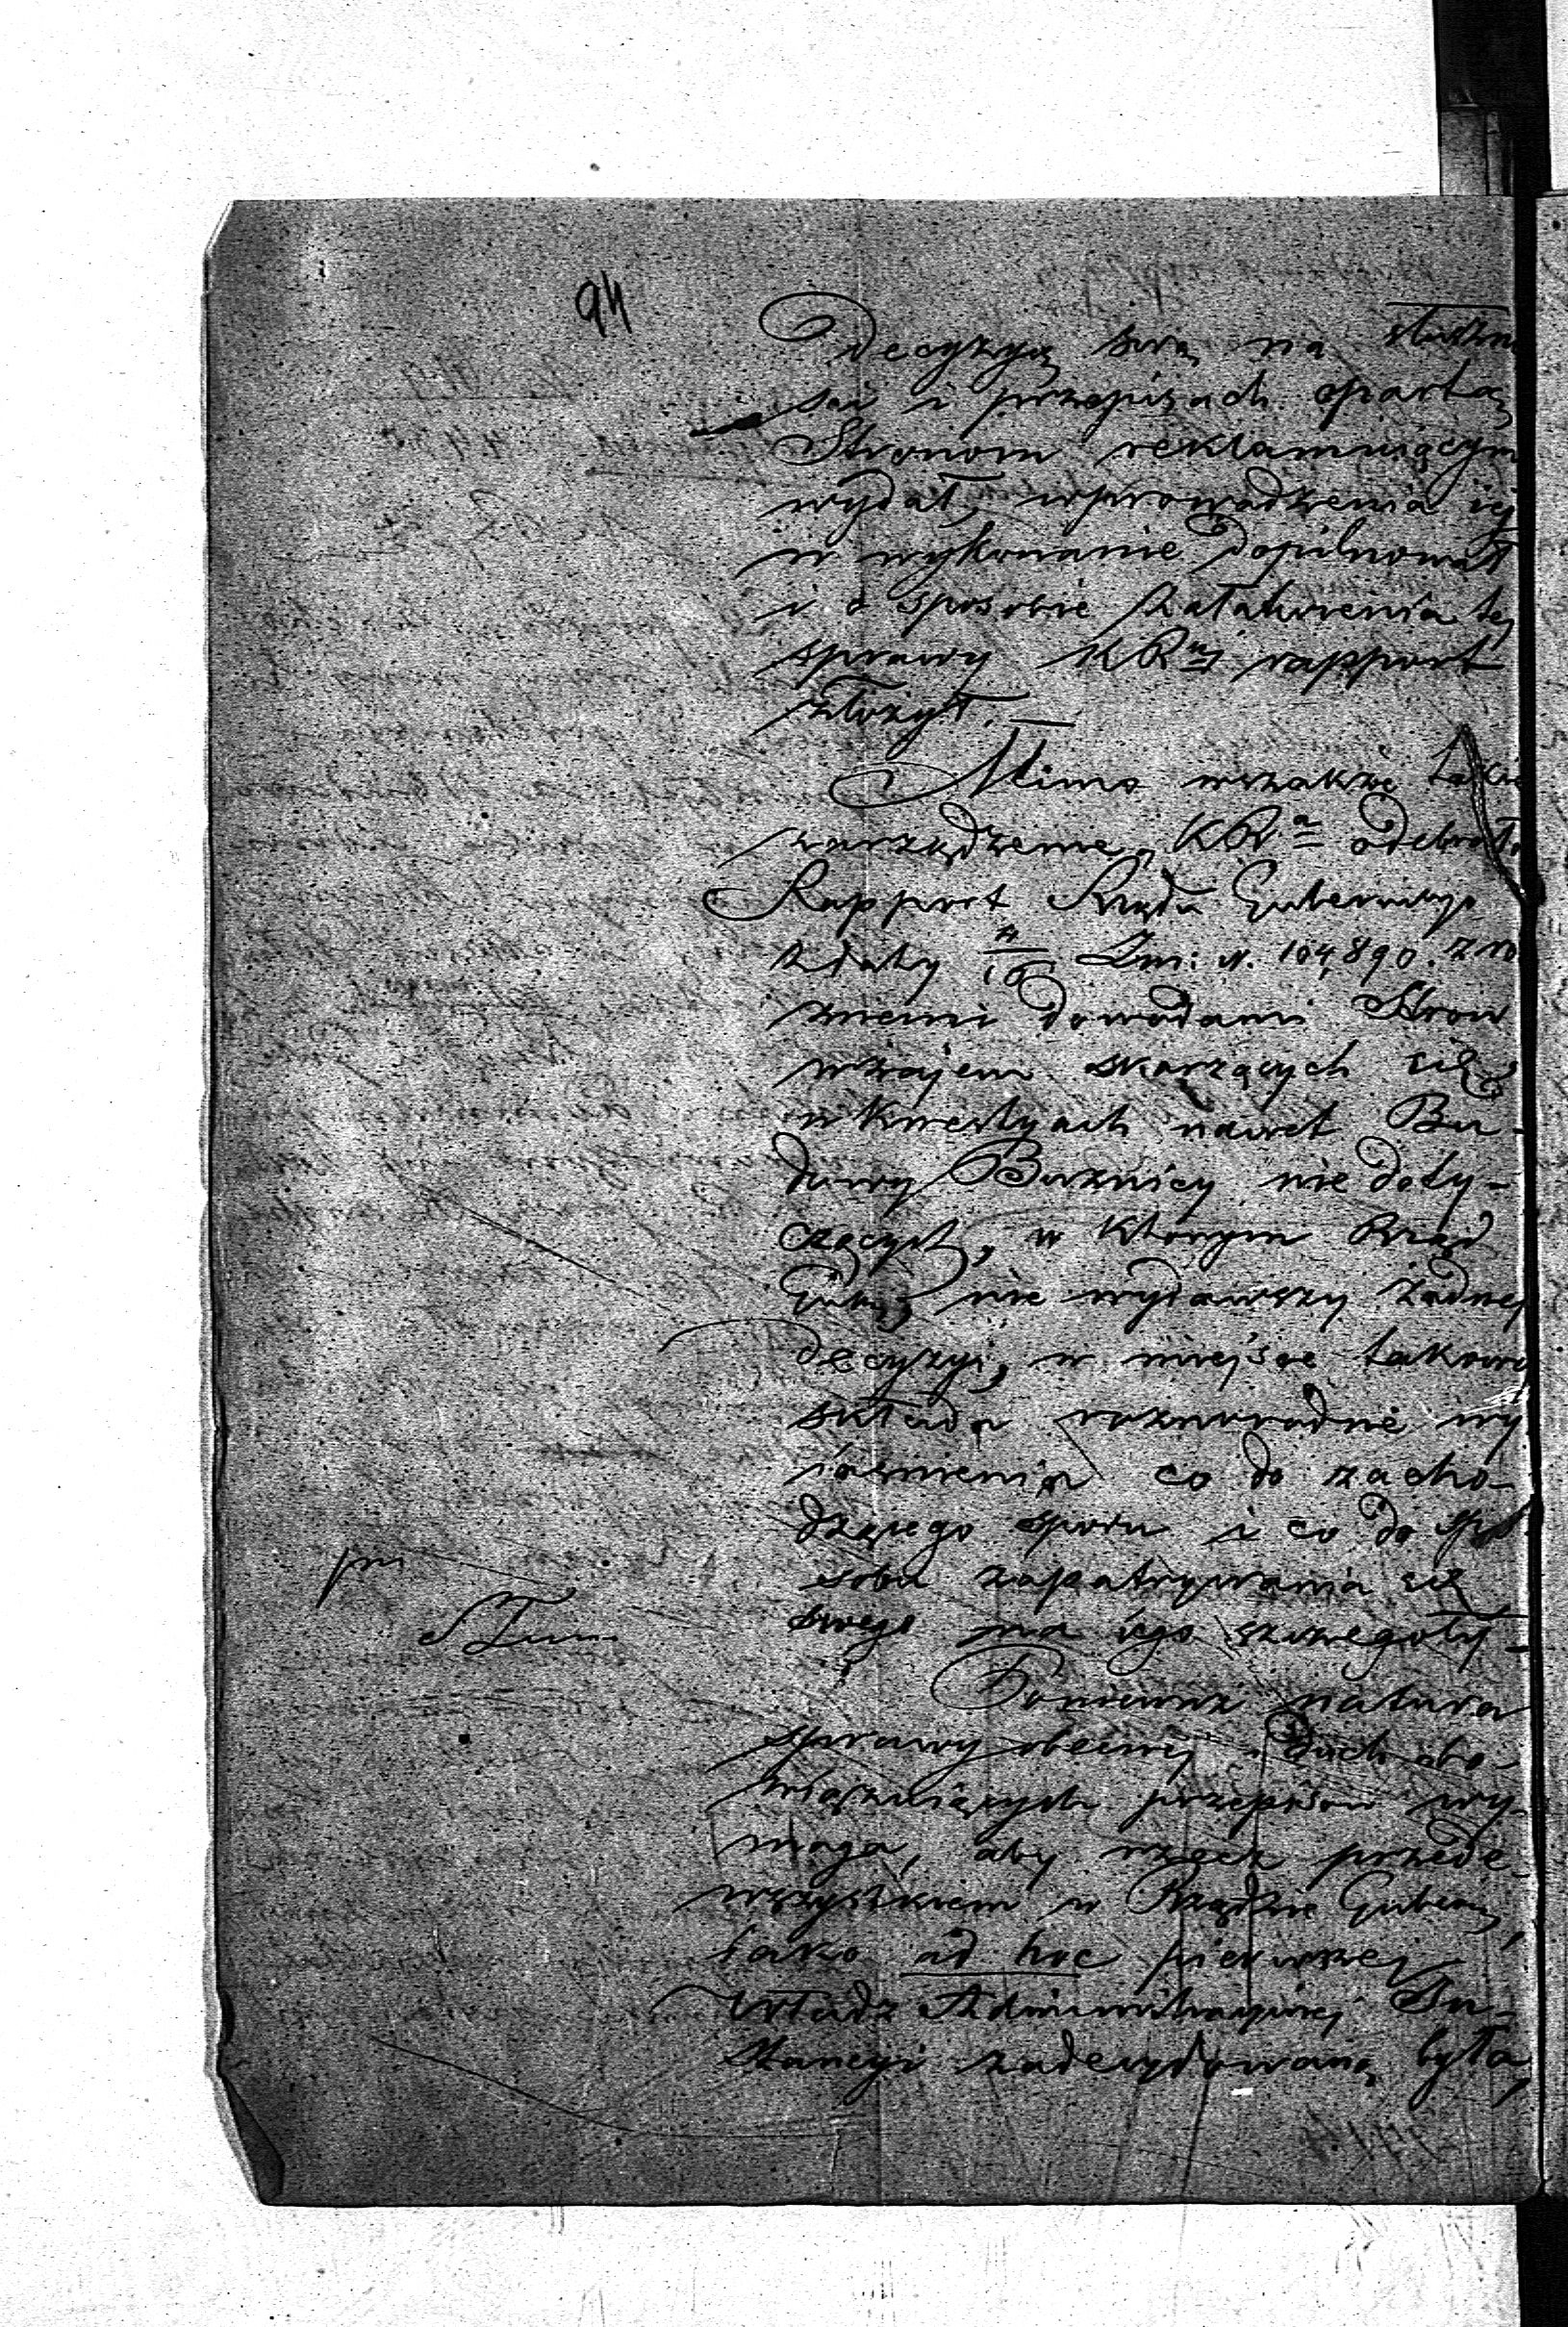 94
decyzyą swą na słuszno
ści i przepisach opartą
Stronom reklamuiącym
wydał, wprowadzenia iéj
w wykonanie dopilnował
i o sposobie załatwienia tej
sprawy KRᵘʲ rapport
złożył. —
Mimo wszakże takie
zarządzenie, KRᵃ odebrała
Rapport Rządu Gubernialnego
z daty 4/16 N. 104,890. z ró
żnemi dowodami Stron
wzajem skarżących się
w kwestyach nawet Bu-
dowy Bużnicy nie doty-
czących, w którym Rząd
Gub. nie wydawszy żadnej
decyzyi, w miejsce takowej
składa roznorodne wy
iaśnienia co do zacho-
dzącego sporu i co do spo
sobu zapatrywania się
swego na iego szczegóły -
Ponieważ natura
sprawy obecnej i duch obo-
wiązuiących przepisów wy-
maga, aby rzecz przede-
wszystkiem w Rządzie Gubern:
iako ad hoc pierwszej
Władz Administracyjnej In-
stancyi zadecydowaną była,